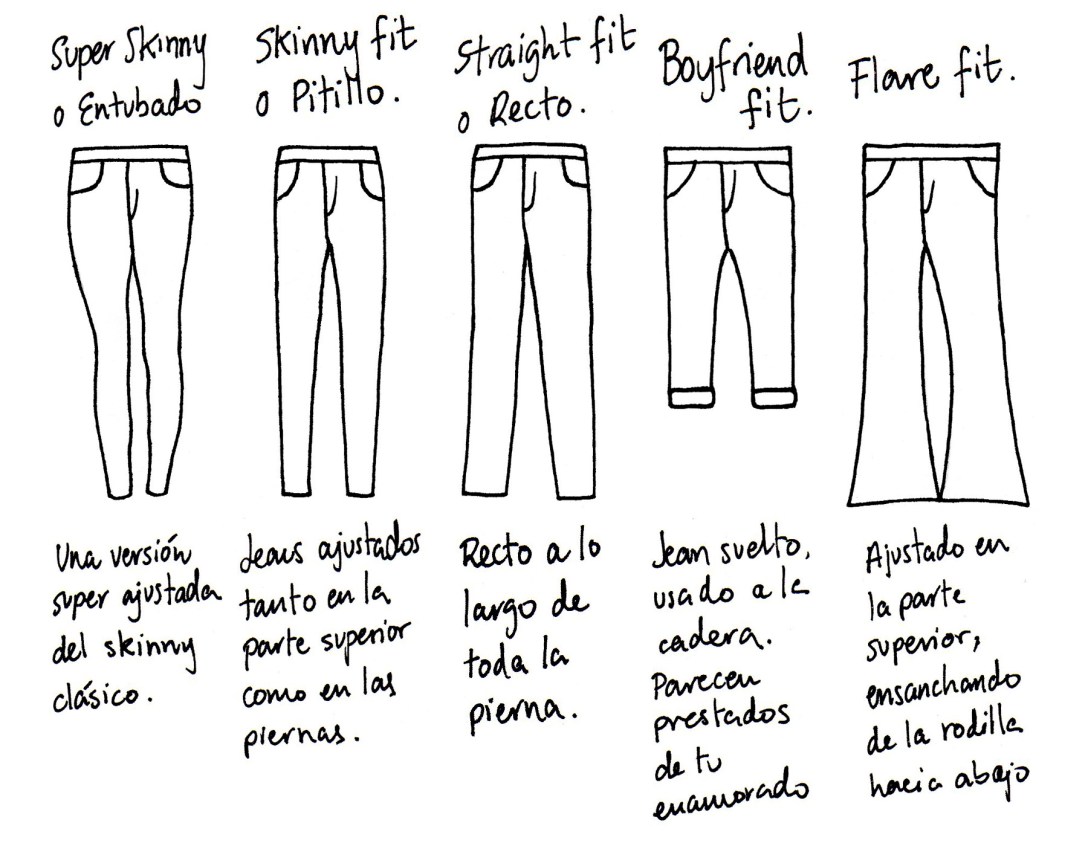 Super Skinny
o Entubado
Skinny fit
o Pitillo.
Straight fit
o Recto.
Boyfriend
fit.
Flare fit.
Una versión
super ajustada
del skinny
clásico.
Jeans ajustados
tanto en la
parte superior
como en las
piernas.
Recto a lo
largo de
toda la
pierna.
Jean suelto,
usado a la
cadera.
Parecen
prestados
de tu
enamorado
Ajustado en
la parte
superior,
ensanchando
de la rodilla
hacia abajo